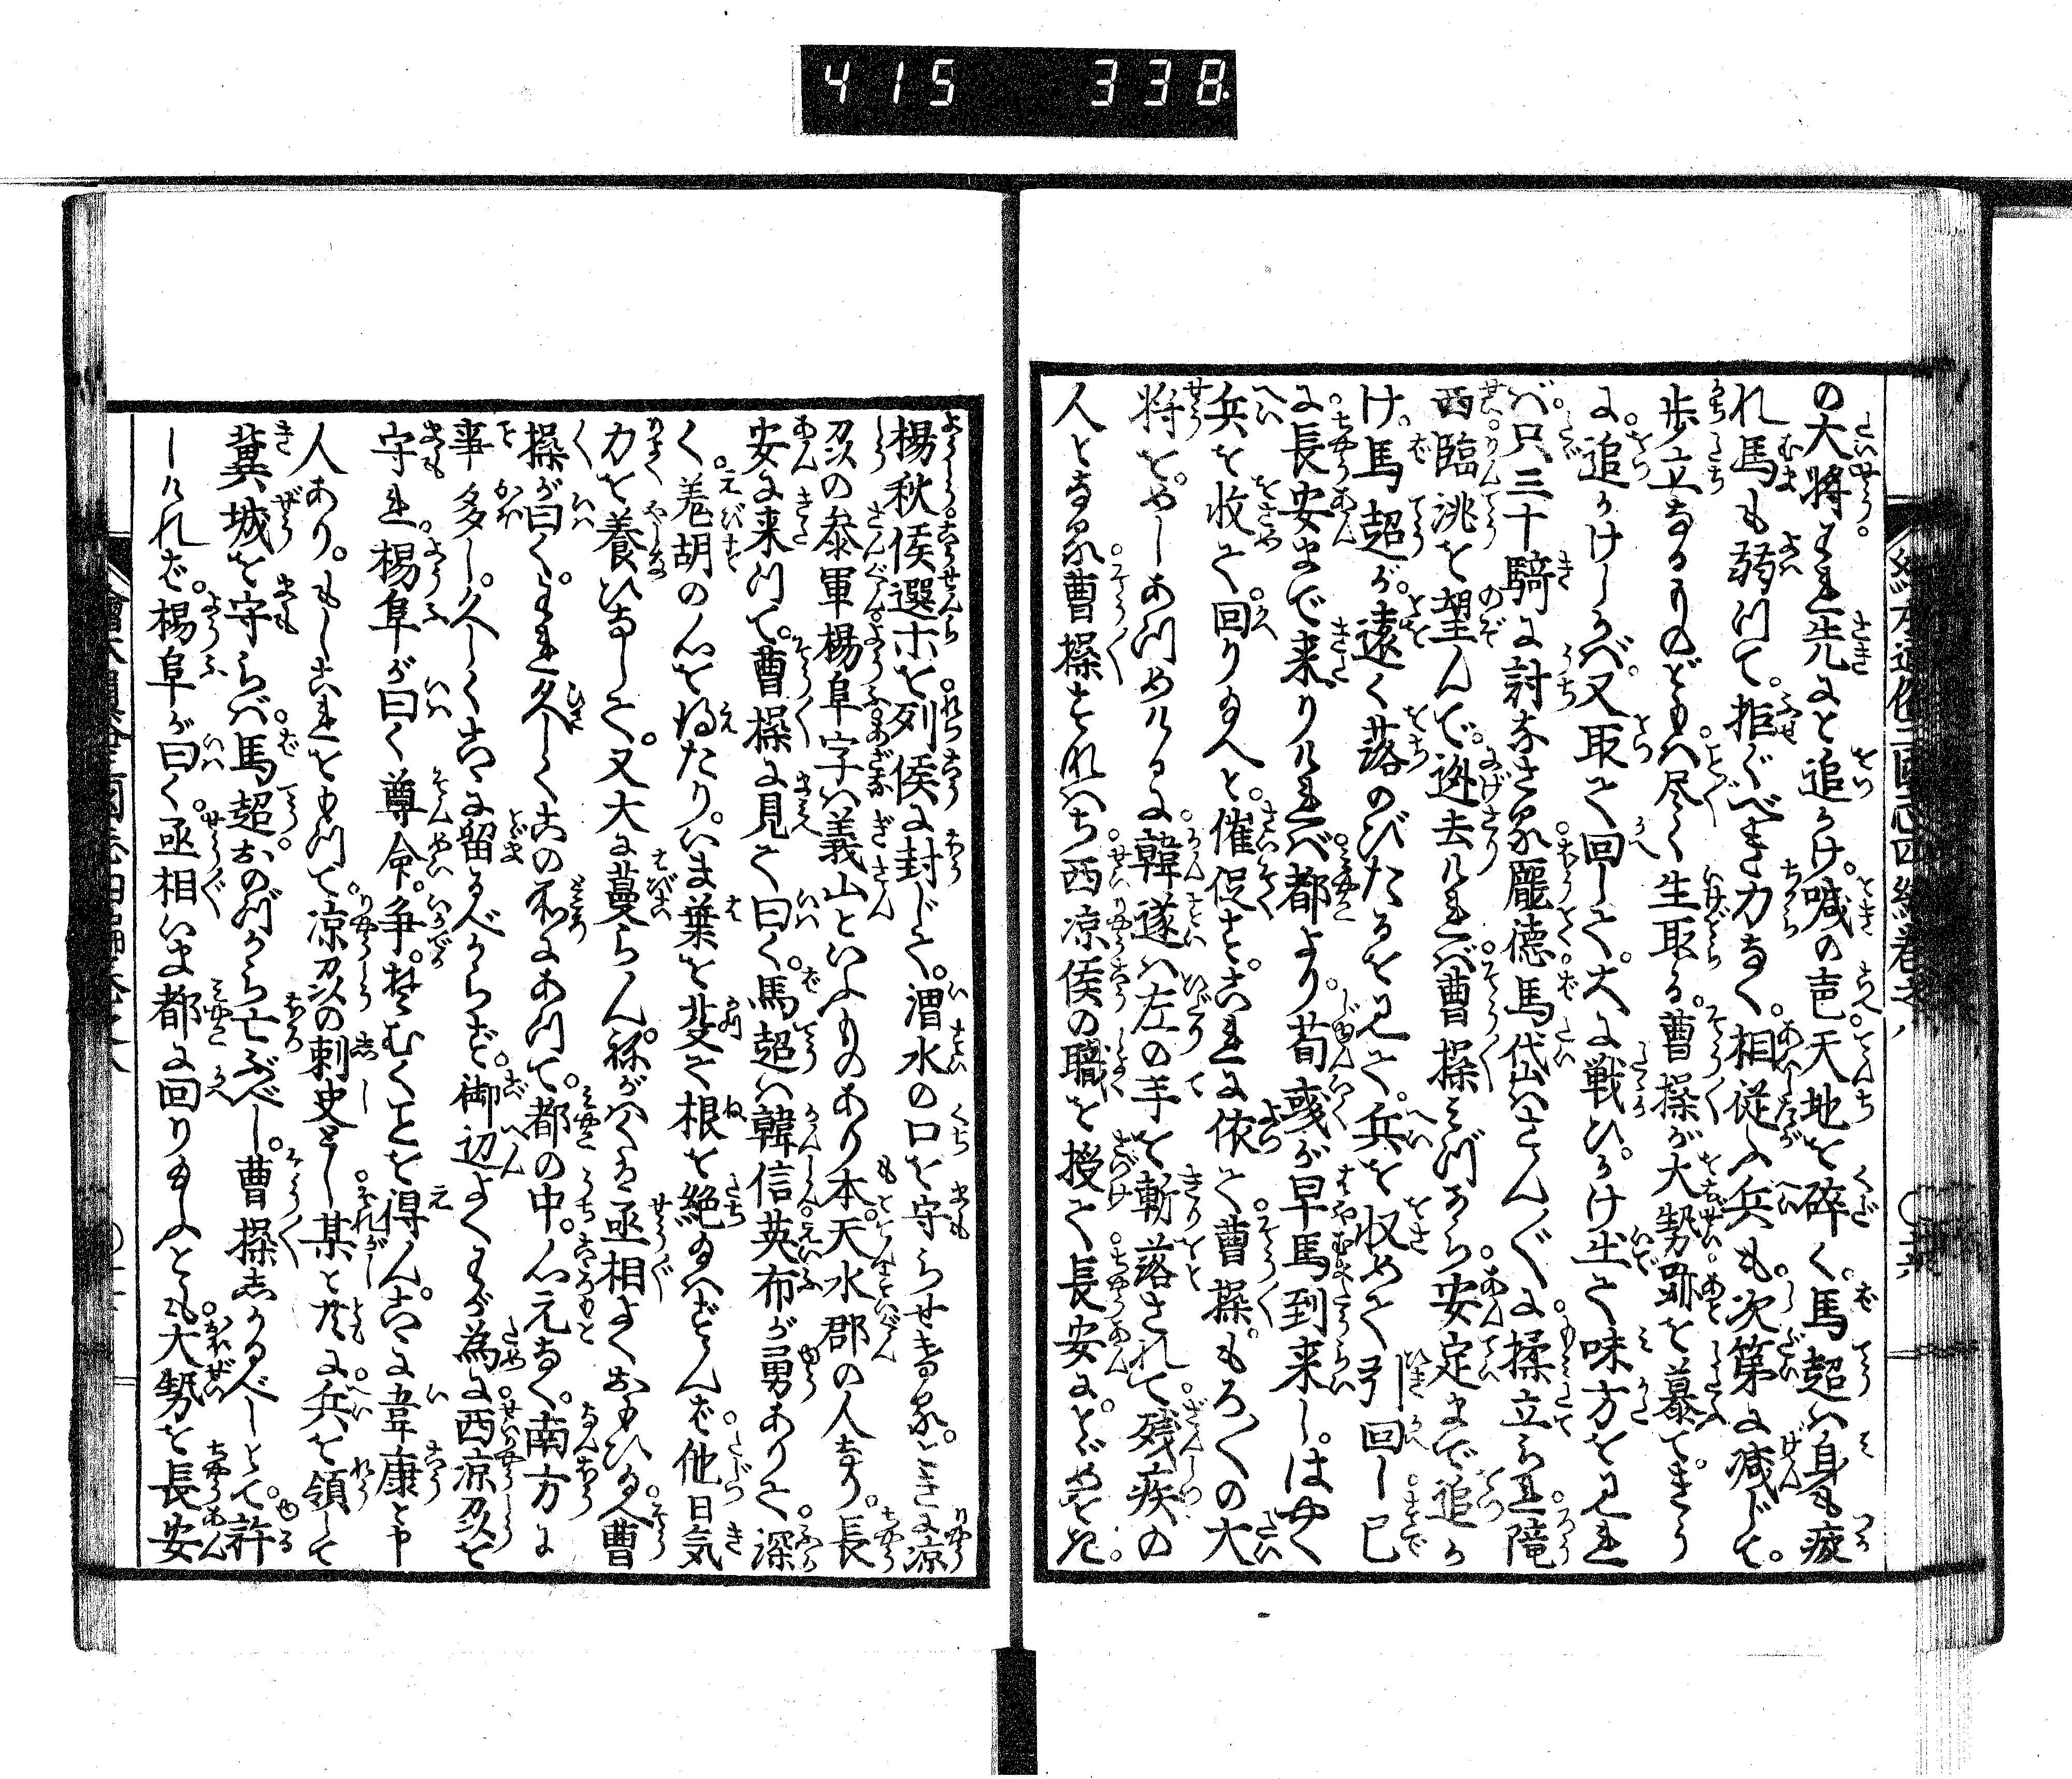 415 338
の大将われ先にと追かけ。喊の声。天地を碎く。馬超は身も疲
れ馬も弱つて。拒ぐべき力なく。相従ふ兵も次第に減じて。
歩立なるものどもハ。尽く生取る。曹操が大㔟。跡を慕てきう
に。追かけしかバ。又取て回して。大に戦ひ。かけ出て味方を見れ
バ。只三十騎に討なされ。龐徳馬岱はさん〴〵に揉立られ。隴
西臨洮を望んで。迯去けれバ。曹操みづから。安定まで追か
け。馬超が。遠く落のびたるを見て。兵を収めて引回し。已
に。長安まで来りけれバ。都より荀彧が早馬到来し。はやく
兵を收て。回り玉へと。催促す。これに依て。曹操。もろ〳〵の大
将を。めしあつめけるに。韓遂ハ左の手を斬落されて。残疾の
人となる。曹操すなハち。西凉侯の職を授て。長安に。とゞめをき。
楊秋侯選ホを。列侯に封じて。渭水の口を守らせける。ときに凉
刕の叅軍楊阜字ハ義山といふものあり本。天水郡の人なり。長
安に来つて。曹操に見て曰く。馬超ハ韓信英布が勇ありて。深
く。羗胡の心を得たり。いま葉を芟て根を絶玉ハずんば。他日気
力を養ひなして。又大に蔓らん。祢がハくハ丞相よくおもひ玉へ。曹
操が曰く。われ久しくこの所にあつて。都の中。心元なく。南方に
事多し。久しくこゝに留るべからず。御辺よくわが為に。西凉刕を
守れ。楊阜が曰く尊命。争。そむくことを得ん。こゝに韋康と申
人あり。もしこれをもつて。凉刕の刺史とし。某と共に。兵を領して
冀城を守らバ。馬超。おのづから亡ぶべし。曹操しかるべしとて。許
しければ。楊阜が曰く。丞相いま都に回り玉ふとも。大㔟を長安